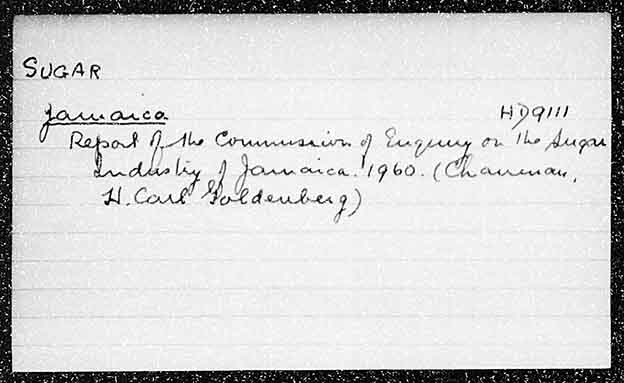 SUGAR
Jamaica HD9111
Report of the Commission of Enquiry on the Sugar
Industry of Jamaica. 1960. (Chairman,
H. Carl Goldenberg)